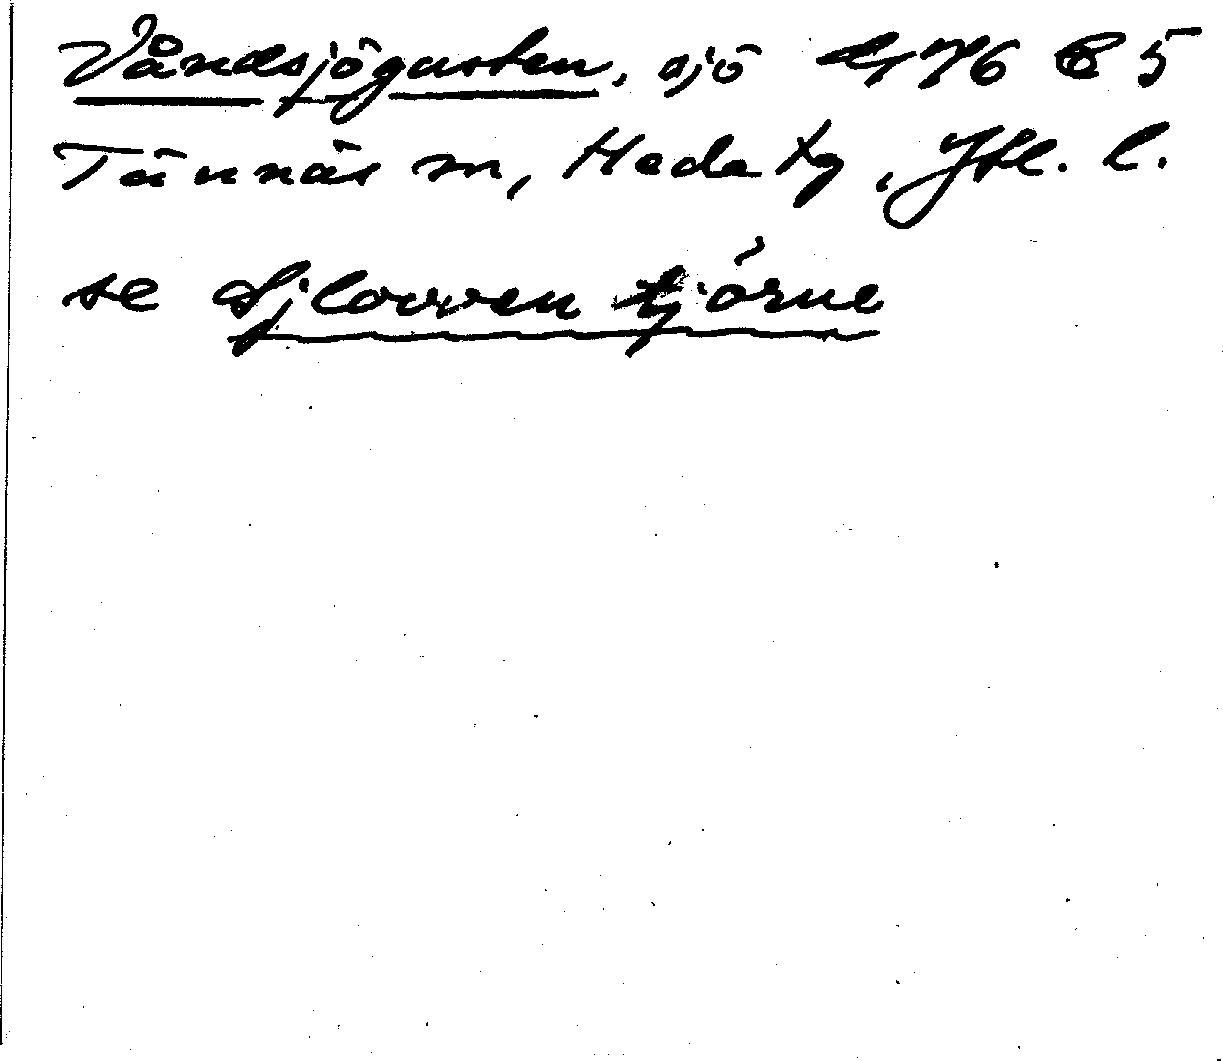 Våndsjögusten, sjö 176 C 5
Tännäs sn, Heda tg, Jtl. l.
se Sjlovven tjórne